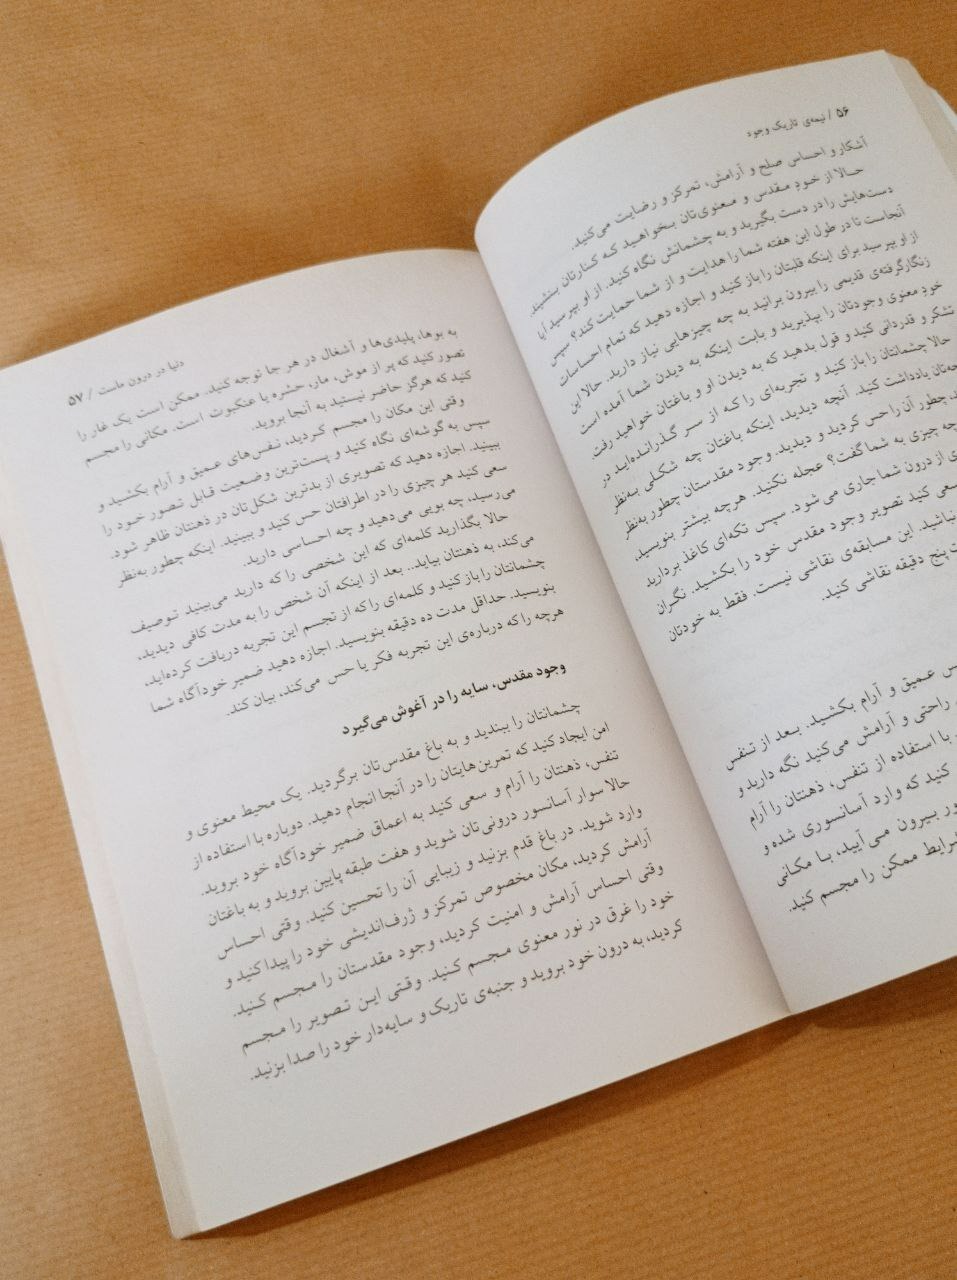 ۵۶ / نیمه‌ی تاریک وجود
آشکار و احساس صلح و آرامش، تمرکز و رضایت می‌کنید.
حالا از خودِ مقدس و معنوی‌تان بخواهید که کنارتان بنشیند.
دست‌هایش را در دست بگیرید و به چشمانش نگاه کنید. از او بپرسید آیا
آنجاست تا در طول این هفته شما را هدایت و از شما حمایت کند؟ سپس
از او بپرسید برای اینکه قلبتان را باز کنید و اجازه دهید که تمام احساسات
زنگارگرفته‌ی قدیمی را بیرون برانید به چه چیزهایی نیاز دارید. حالا این
خودِ معنوی وجودتان را بپذیرید و بابت اینکه به دیدن شما آمده است
تشکر و قدردانی کنید و قول بدهید که به دیدن او و باغتان خواهید رفت.
حالا چشمانتان را باز کنید و تجربه‌ای را که از سر گذرانده‌اید در
یادداشت کنید. آنچه دیدید، اینکه باغتان چه شکلی به‌نظر
چطور آن را حس کردید و دیدید. وجود مقدستان چطور به‌نظر
چه چیزی به شما گفت؟ عجله نکنید. هرچه بیشتر بنویسید،
از درون شما جاری می‌شود. سپس تکه‌ای کاغذ بردارید
سعی کنید تصویر وجود مقدس خود را بکشید. نگران
نباشید. این مسابقه‌ی نقاشی نیست. فقط به خودتان
پنج دقیقه نقاشی کنید.
عمیق و آرام بکشید. بعد از تنفس
راحتی و آرامش می‌کنید نگه دارید و
با استفاده از تنفس، ذهنتان را آرام
کنید که وارد آسانسوری شده و
بیرون می‌آیید، با مکانی
شرایط ممکن را مجسم کنید.
دنیا در درون ماست / ۵۷
به بوها، پلیدی‌ها و آشغال در هر جا توجه کنید. ممکن است یک غار را
تصور کنید که پر از موش، مار، حشره یا عنکبوت است. مکانی را مجسم
کنید که هرگز حاضر نیستید به آنجا بروید.
وقتی این مکان را مجسم کردید، نفس‌های عمیق و آرام بکشید و
سپس به گوشه‌ای نگاه کنید و پست‌ترین وضعیت قابل تصور خود را
ببینید. اجازه دهید که تصویری از بدترین شکل‌تان در ذهنتان ظاهر شود.
سعی کنید هر چیزی را در اطرافتان حس کنید و ببینید. اینکه چطور به‌نظر
می‌رسید، چه بویی می‌دهید و چه احساسی دارید.
حالا بگذارید کلمه‌ای که این شخصی را که دارید می‌بینید توصیف
می‌کند، به ذهنتان بیاید.. بعد از اینکه آن شخص را به مدت کافی دیدید،
چشمانتان را باز کنید و کلمه‌ای را که از تجسم این تجربه دریافت کرده‌اید،
بنویسید. حداقل مدت ده دقیقه بنویسید. اجازه دهید ضمیر خودآگاه شما
هرچه را که درباره‌ی این تجربه فکر یا حس می‌کند، بیان کند.
وجود مقدس، سایه را در آغوش می‌گیرد
چشمانتان را ببندید و به باغ مقدس‌تان برگردید. یک محیط معنوی و
امن ایجاد کنید که تمرین‌هایتان را در آنجا انجام دهید. دوباره با استفاده از
تنفس، ذهنتان را آرام و سعی کنید به اعماق ضمیر خودآگاه خود بروید.
حالا سوار آسانسور درونی‌تان شوید و هفت طبقه پایین بروید و به باغتان
وارد شوید. در باغ قدم بزنید و زیبایی آن را تحسین کنید. وقتی احساس
آرامش کردید، مکان مخصوص تمرکز و ژرف‌اندیشی خود را پیدا کنید و
وقتی احساس آرامش و امنیت کردید، وجود مقدستان را مجسم کنید.
خود را غرق در نور معنوی مجسم کنید. وقتی این تصویر را مجسم
کردید، به درون خود بروید و جنبه‌ی تاریک و سایه‌دار خود را صدا بزنید.